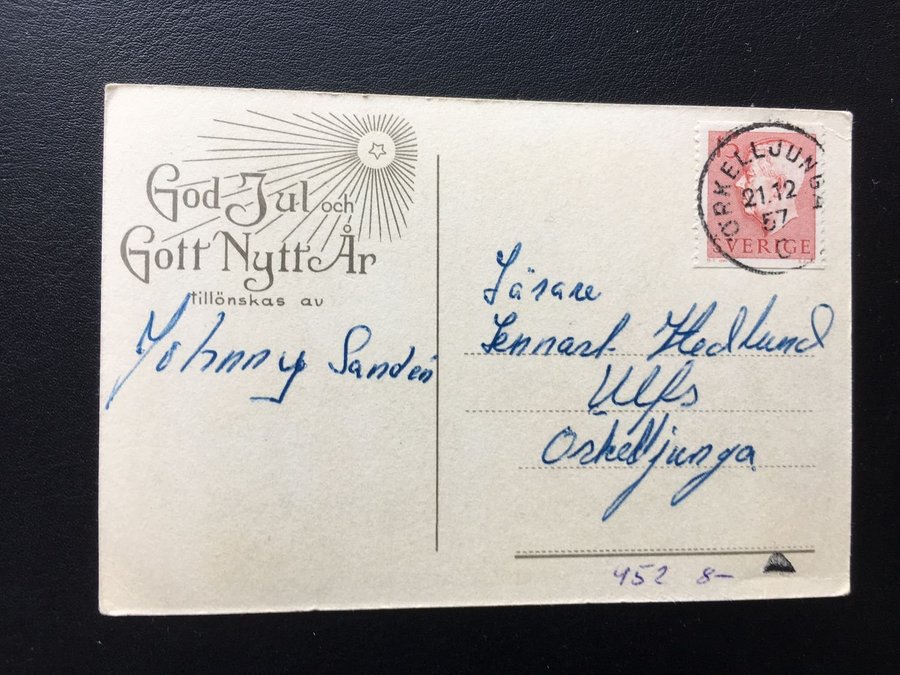 God Jul och
Gott Nytt År
tillönskas av
Johnny Sandén
ÖRKELLJUNGA
21.12
57
SVERIGE
Lärare
Lennart Hedlund
Ulfs
Örkelljunga
452 8-